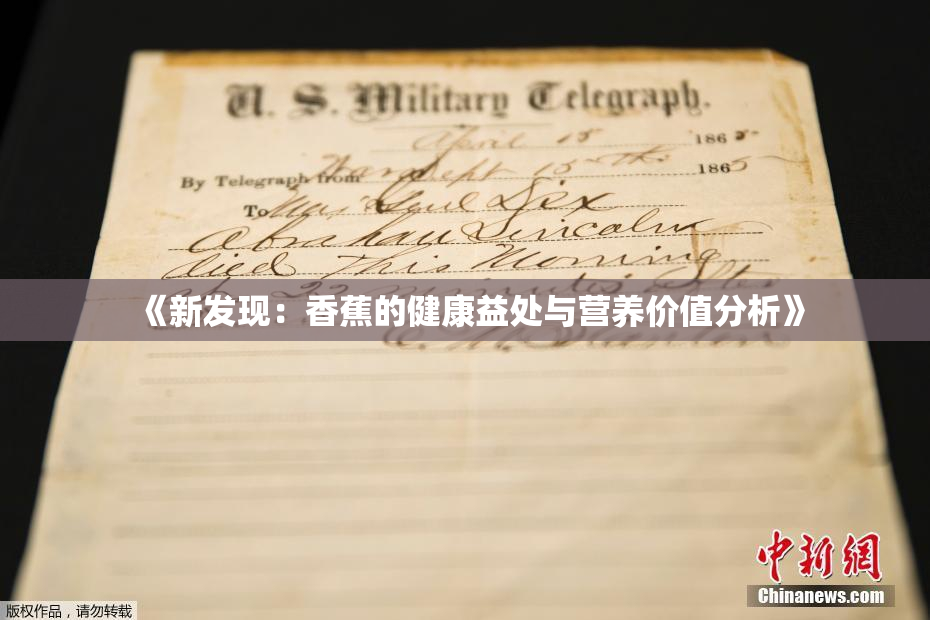 U. S. Military Telegraph.
April 15 1865
By Telegraph from War Dept 15th 1865
To Maj Genl Dix
Abraham Lincoln
died This Morning
at 22 minutes after
《新发现：香蕉的健康益处与营养价值分析》
E. M. Stanton
中新網
Chinanews.com
版权作品，请勿转载